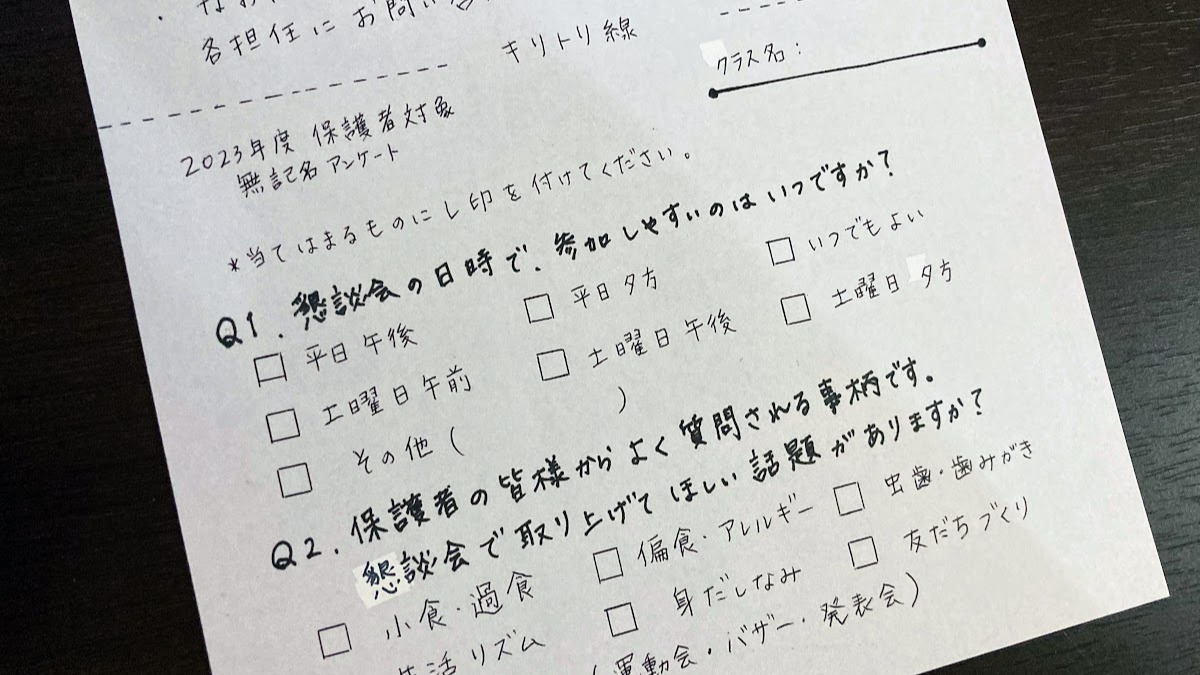 各担任にお問い合
キリトリ線
クラス名:
2023年度 保護者対象
無記名アンケート
*当てはまるものにレ印を付けてください。
Q1. 懇談会の日時で、参加しやすいのはいつですか?
□ 平日午後 □ 平日夕方 □ いつでもよい
□ 土曜日午前 □ 土曜日午後 □ 土曜日夕方
□ その他( )
Q2. 保護者の皆様からよく質問される事柄です。
懇談会で取り上げてほしい話題がありますか?
□ 小食・過食 □ 偏食・アレルギー □ 虫歯・歯みがき
生活リズム □ 身だしなみ □ 友だちづくり
(運動会・バザー・発表会)